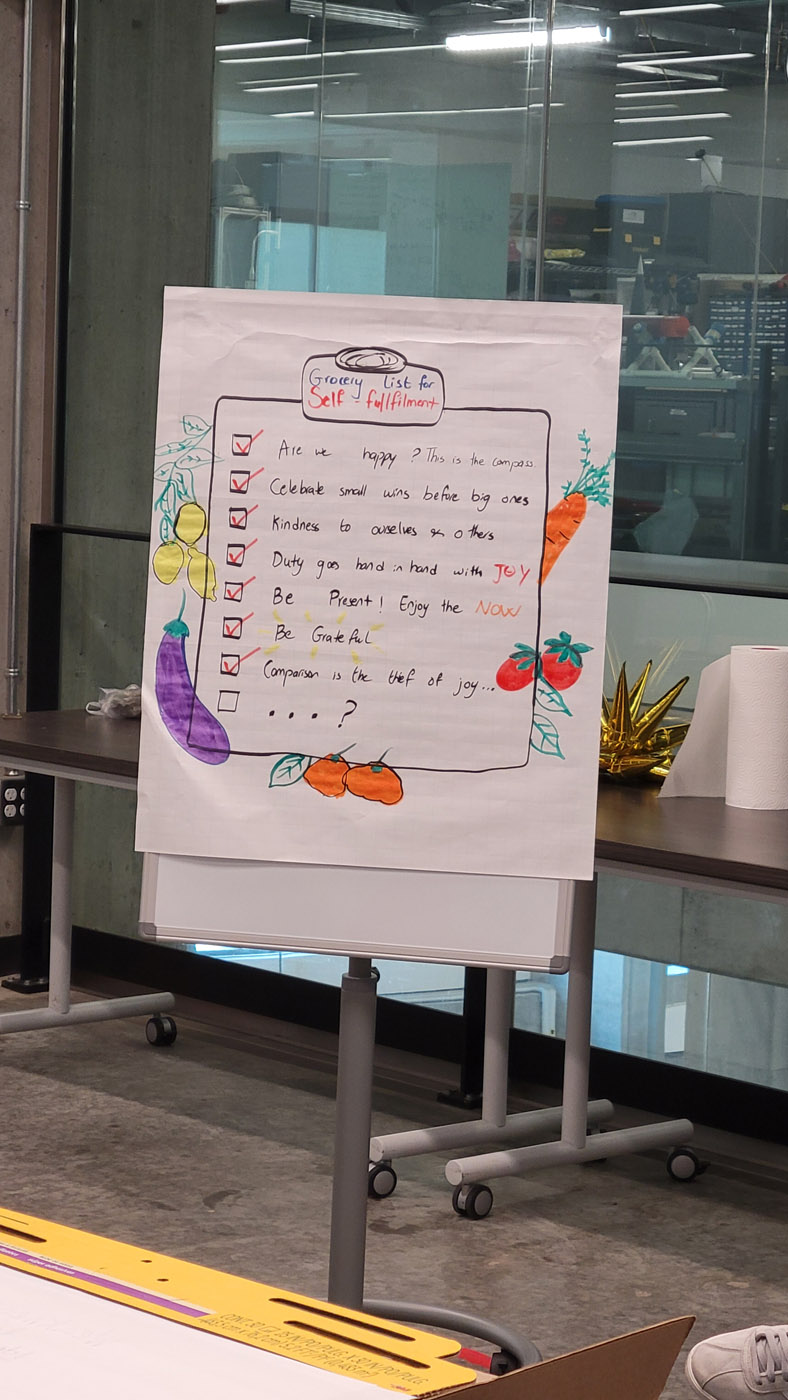 Grocery List for
Self-fullfilment
Are we happy? This is the compass.
Celebrate small wins before big ones
Kindness to ourselves & others
Duty goes hand in hand with JOY
Be Present! Enjoy the NOW
Be Grateful
Comparison is the thief of joy...
...?